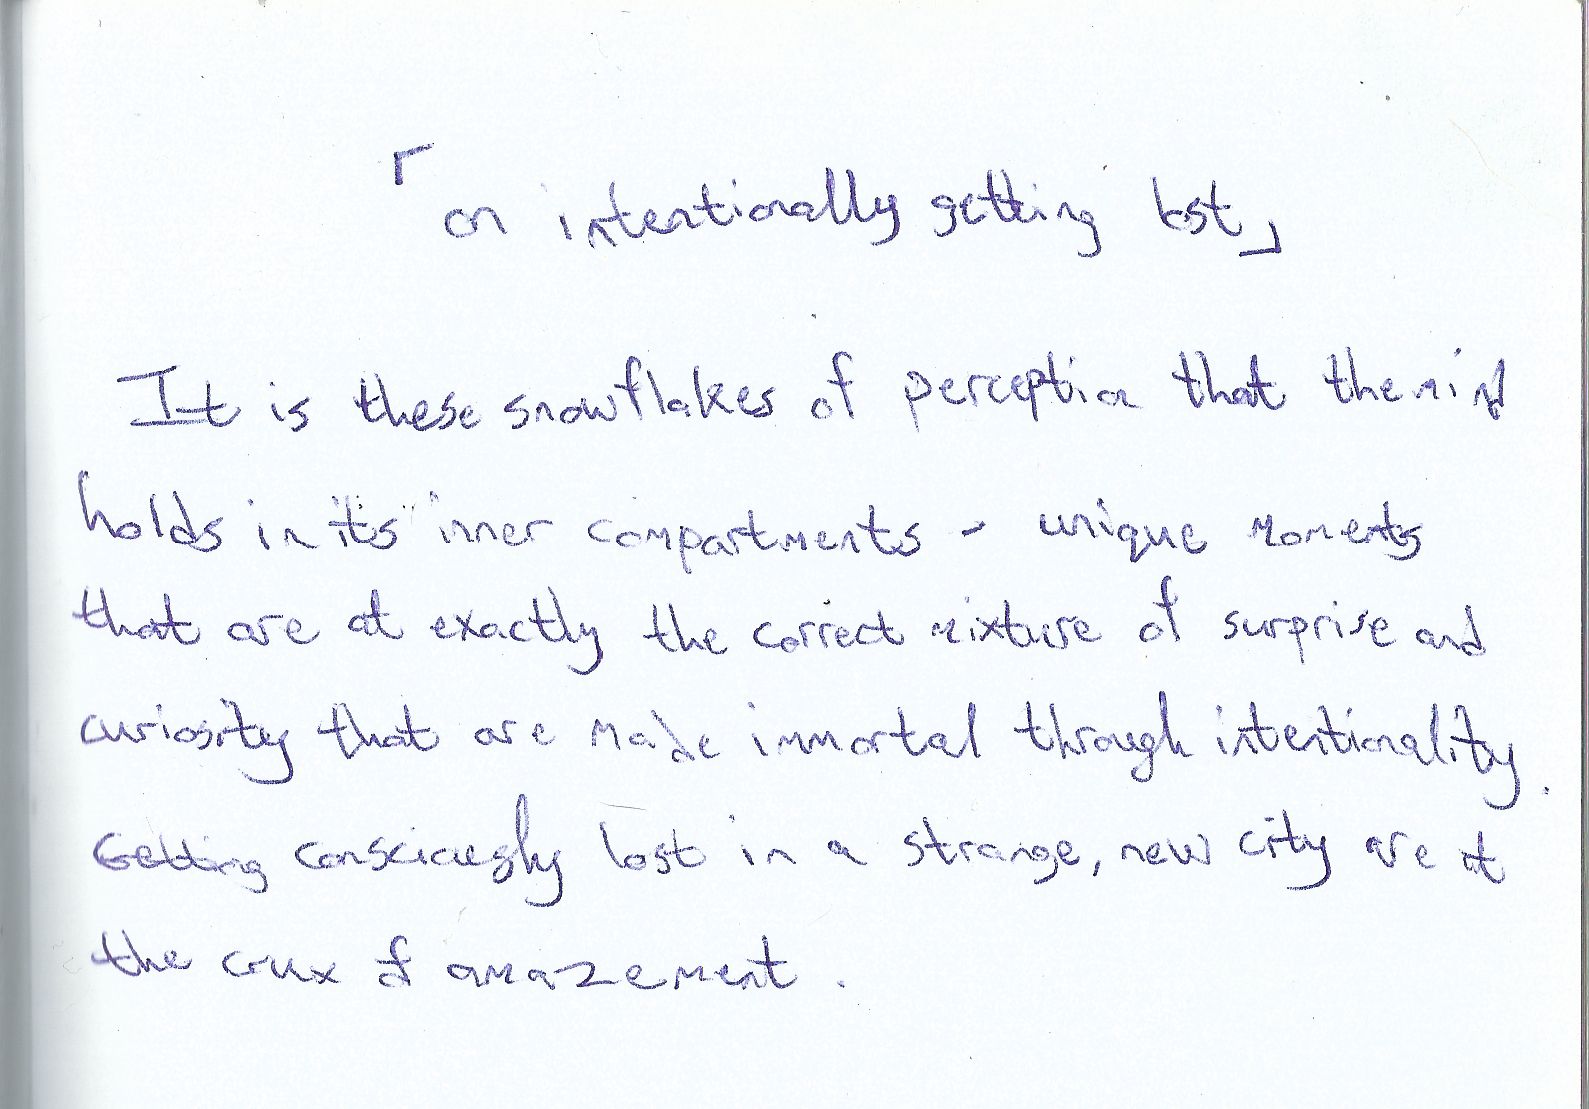 「on intentionally getting lost」
It is these snowflakes of perception that the mind
holds in its inner compartments - unique moments
that are at exactly the correct mixture of surprise and
curiosity that are made immortal through intentionality.
Getting consciously lost in a strange, new city are at
the crux of amazement.